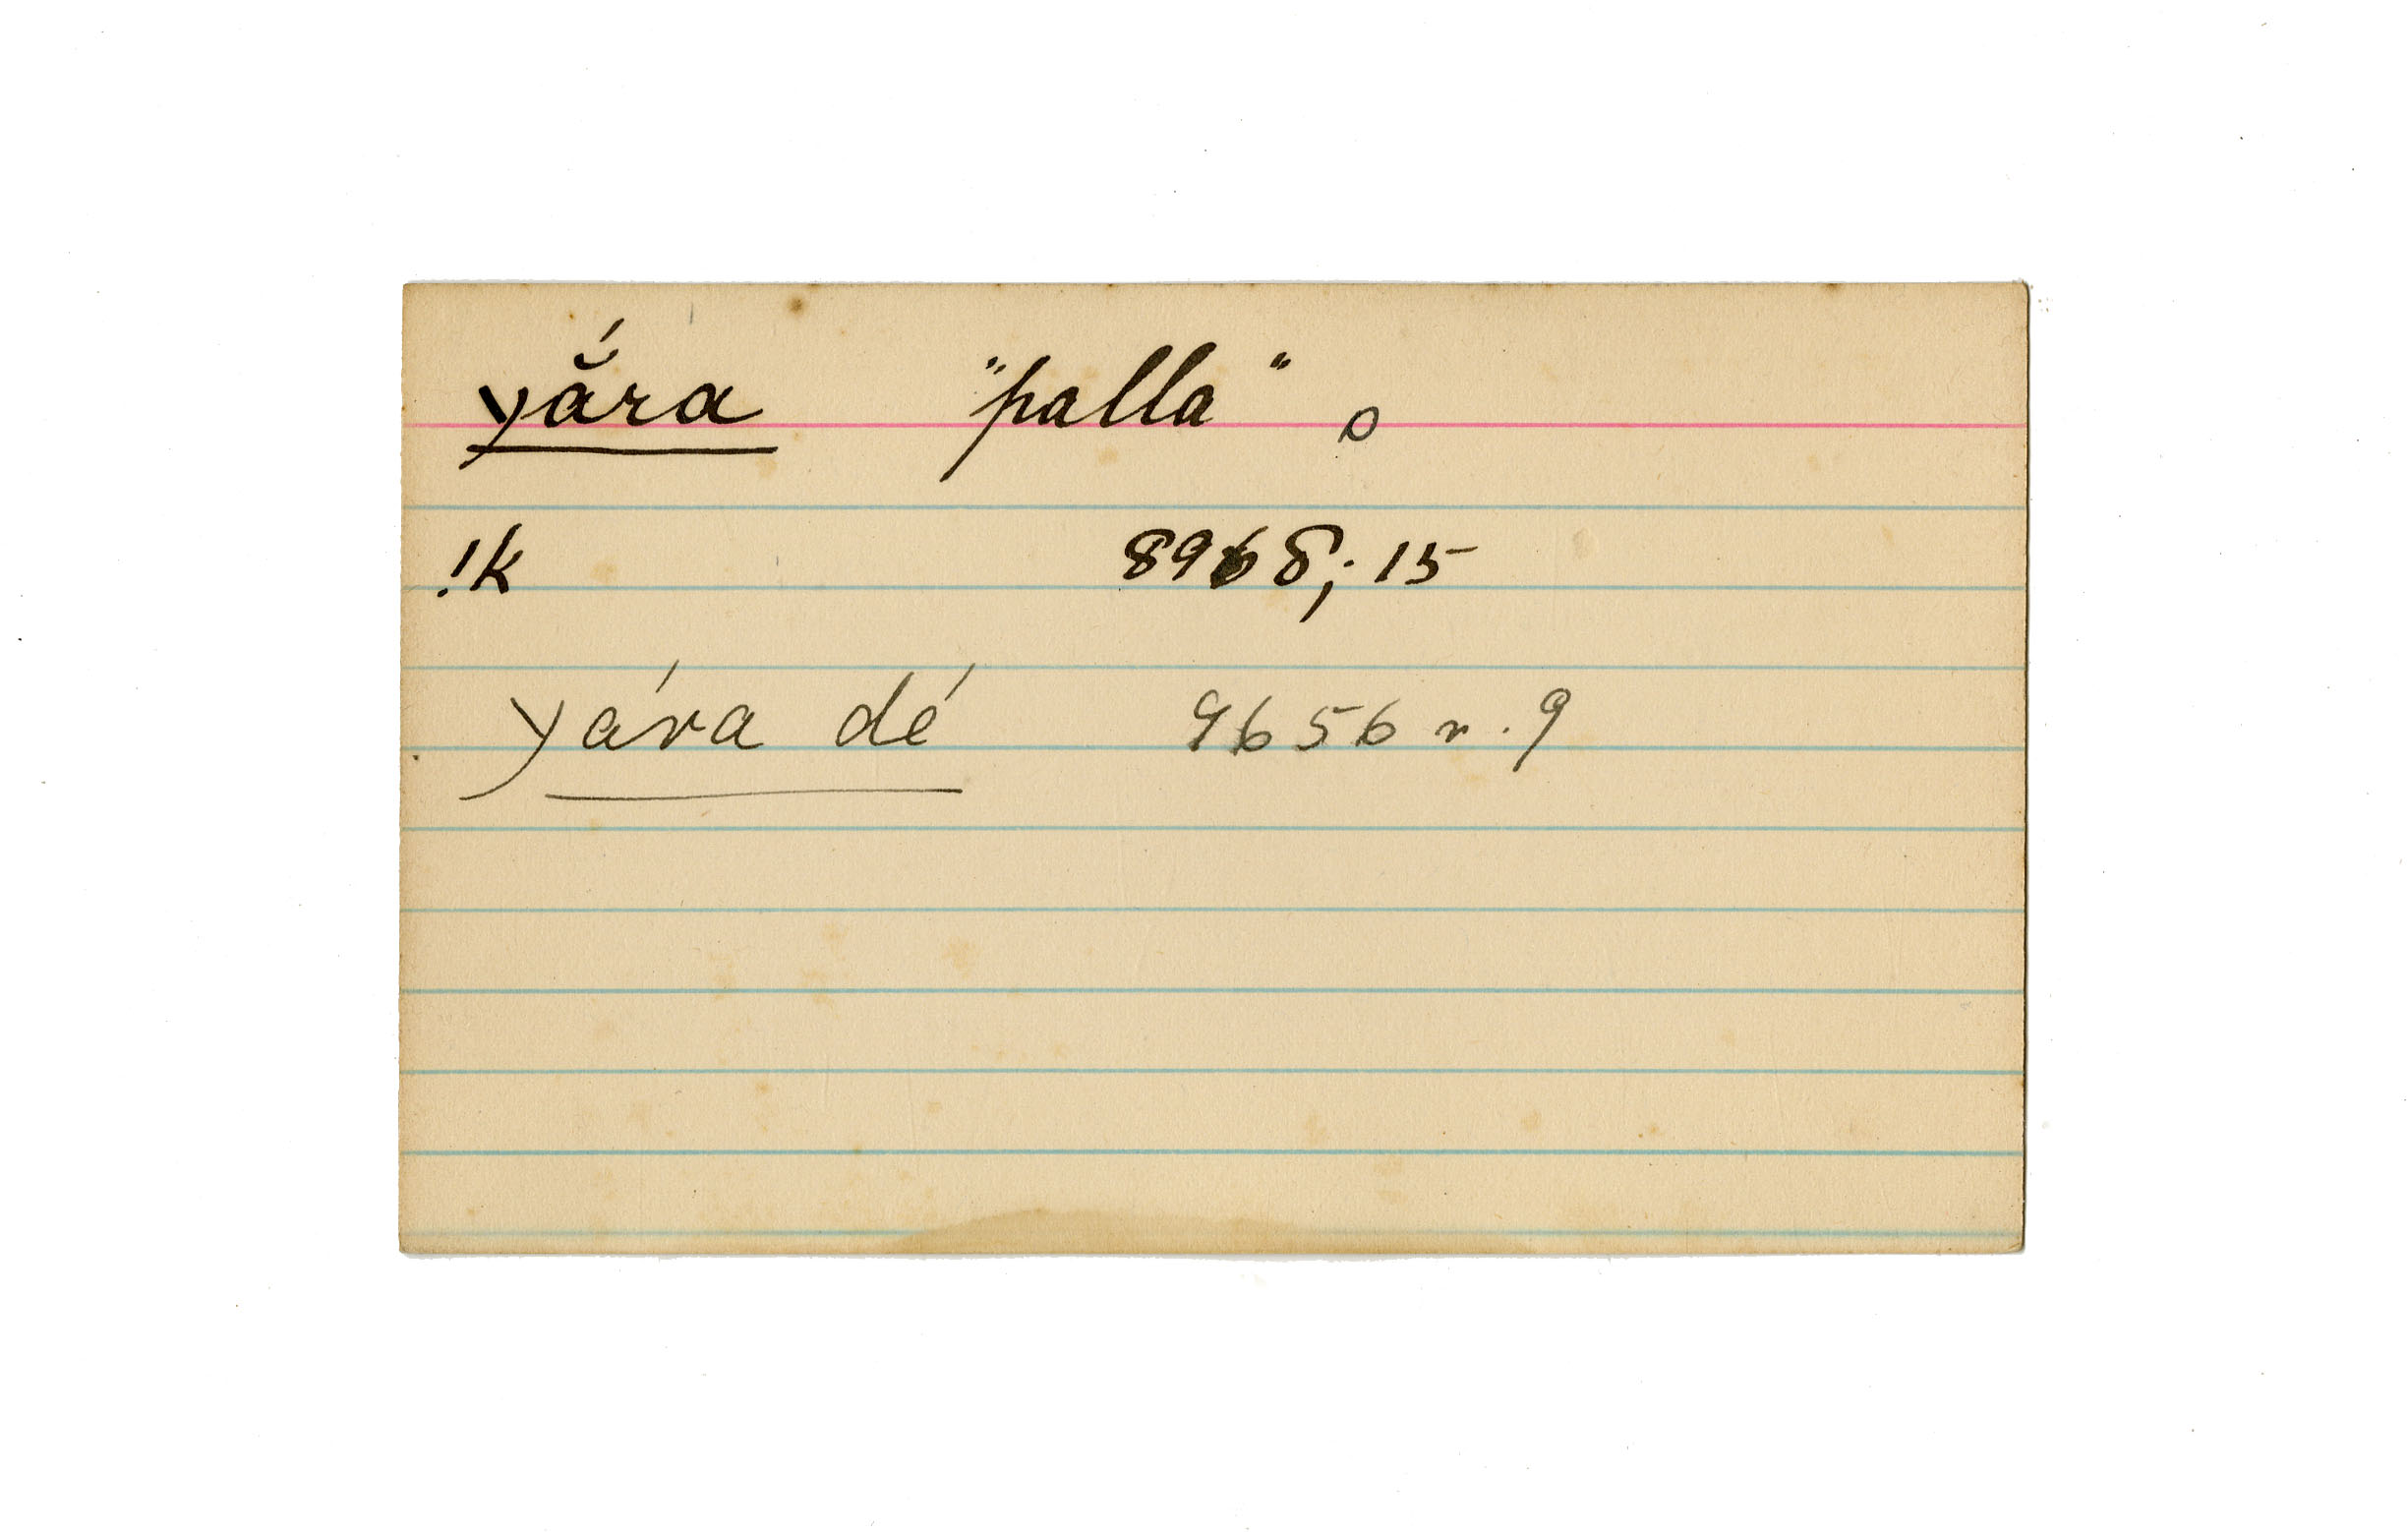 yắra "palla" o
!k 8968; 15
yára dé 9656 n. 9